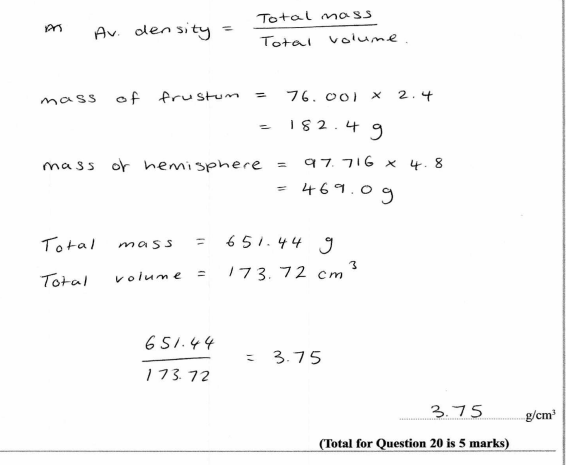 m Av. density = Total mass / Total volume.
mass of frustum = 76.001 × 2.4
= 182.4 g
mass of hemisphere = 97.716 × 4.8
= 469.0 g
Total mass = 651.44 g
Total volume = 173.72 cm³
651.44 / 173.72 = 3.75
3.75 g/cm³
(Total for Question 20 is 5 marks)